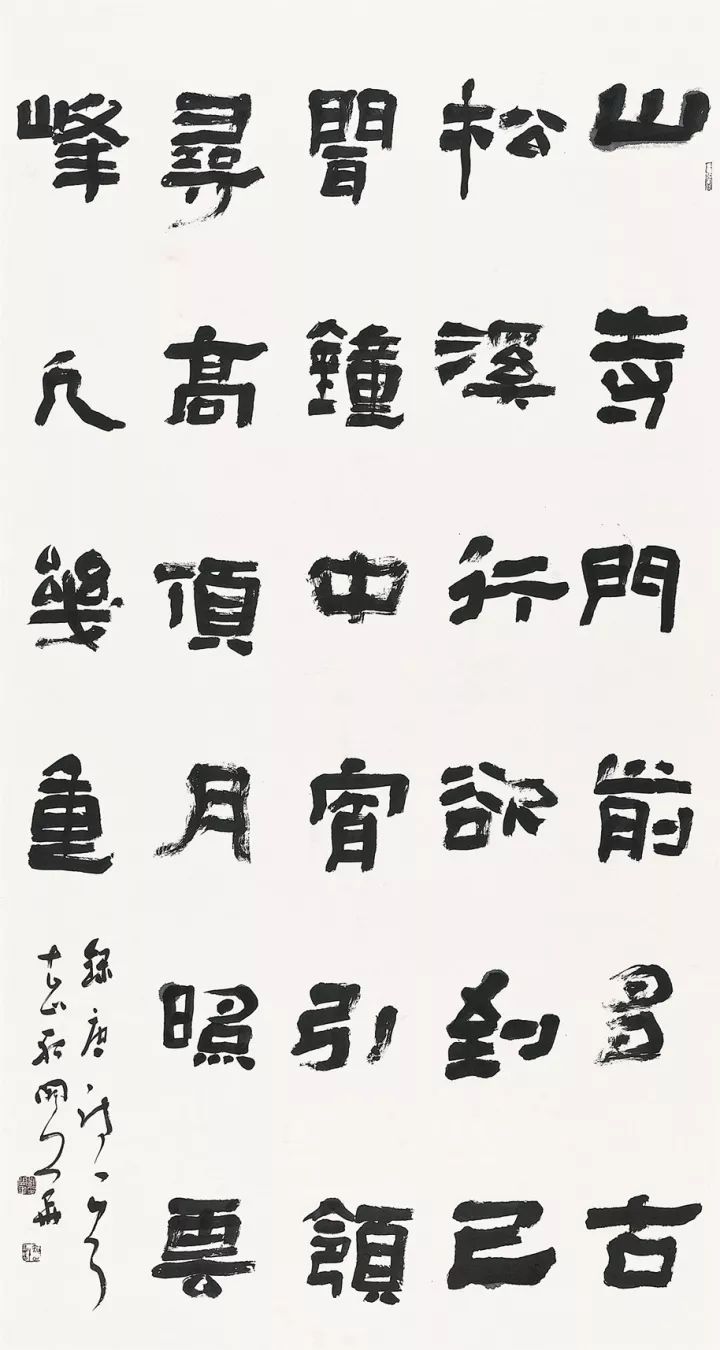 山寺門前多古
松溪行欲到已
聞鐘中宵引領
尋高頂月照雲
峰凡幾重
錄唐詩一首